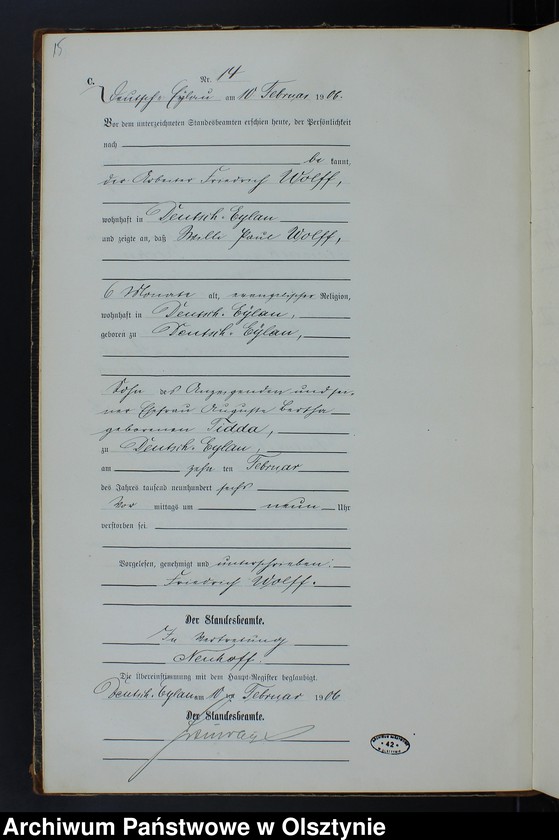 15
C.
Nr. 14
Deutsch-Eylau am 10 Februar 1906.
Vor dem unterzeichneten Standesbeamten erschien heute, der Persönlichkeit
nach
be kannt,
der Arbeiter Friedrich Wolff,
wohnhaft in Deutsch-Eylau
und zeigte an, daß Willi Paul Wolff,
6 Monate alt, evangelischer Religion,
wohnhaft in Deutsch-Eylau,
geboren zu Deutsch-Eylau,
Sohn des Anzeigenden und sei-
ner Ehefrau Auguste Bertha
geborenen Tidda,
zu Deutsch-Eylau,
am zehn ten Februar
des Jahres tausend neunhundert sechs
Vor mittags um neun Uhr
verstorben sei.
Vorgelesen, genehmigt und unterschrieben:
Friedrich Wolff.
Der Standesbeamte.
In Vertretung
Neuhoff.
Die Übereinstimmung mit dem Haupt-Register beglaubigt.
Deutsch-Eylau am 10 ten Februar 1906
Der Standesbeamte.
42
Archiwum Państwowe w Olsztynie